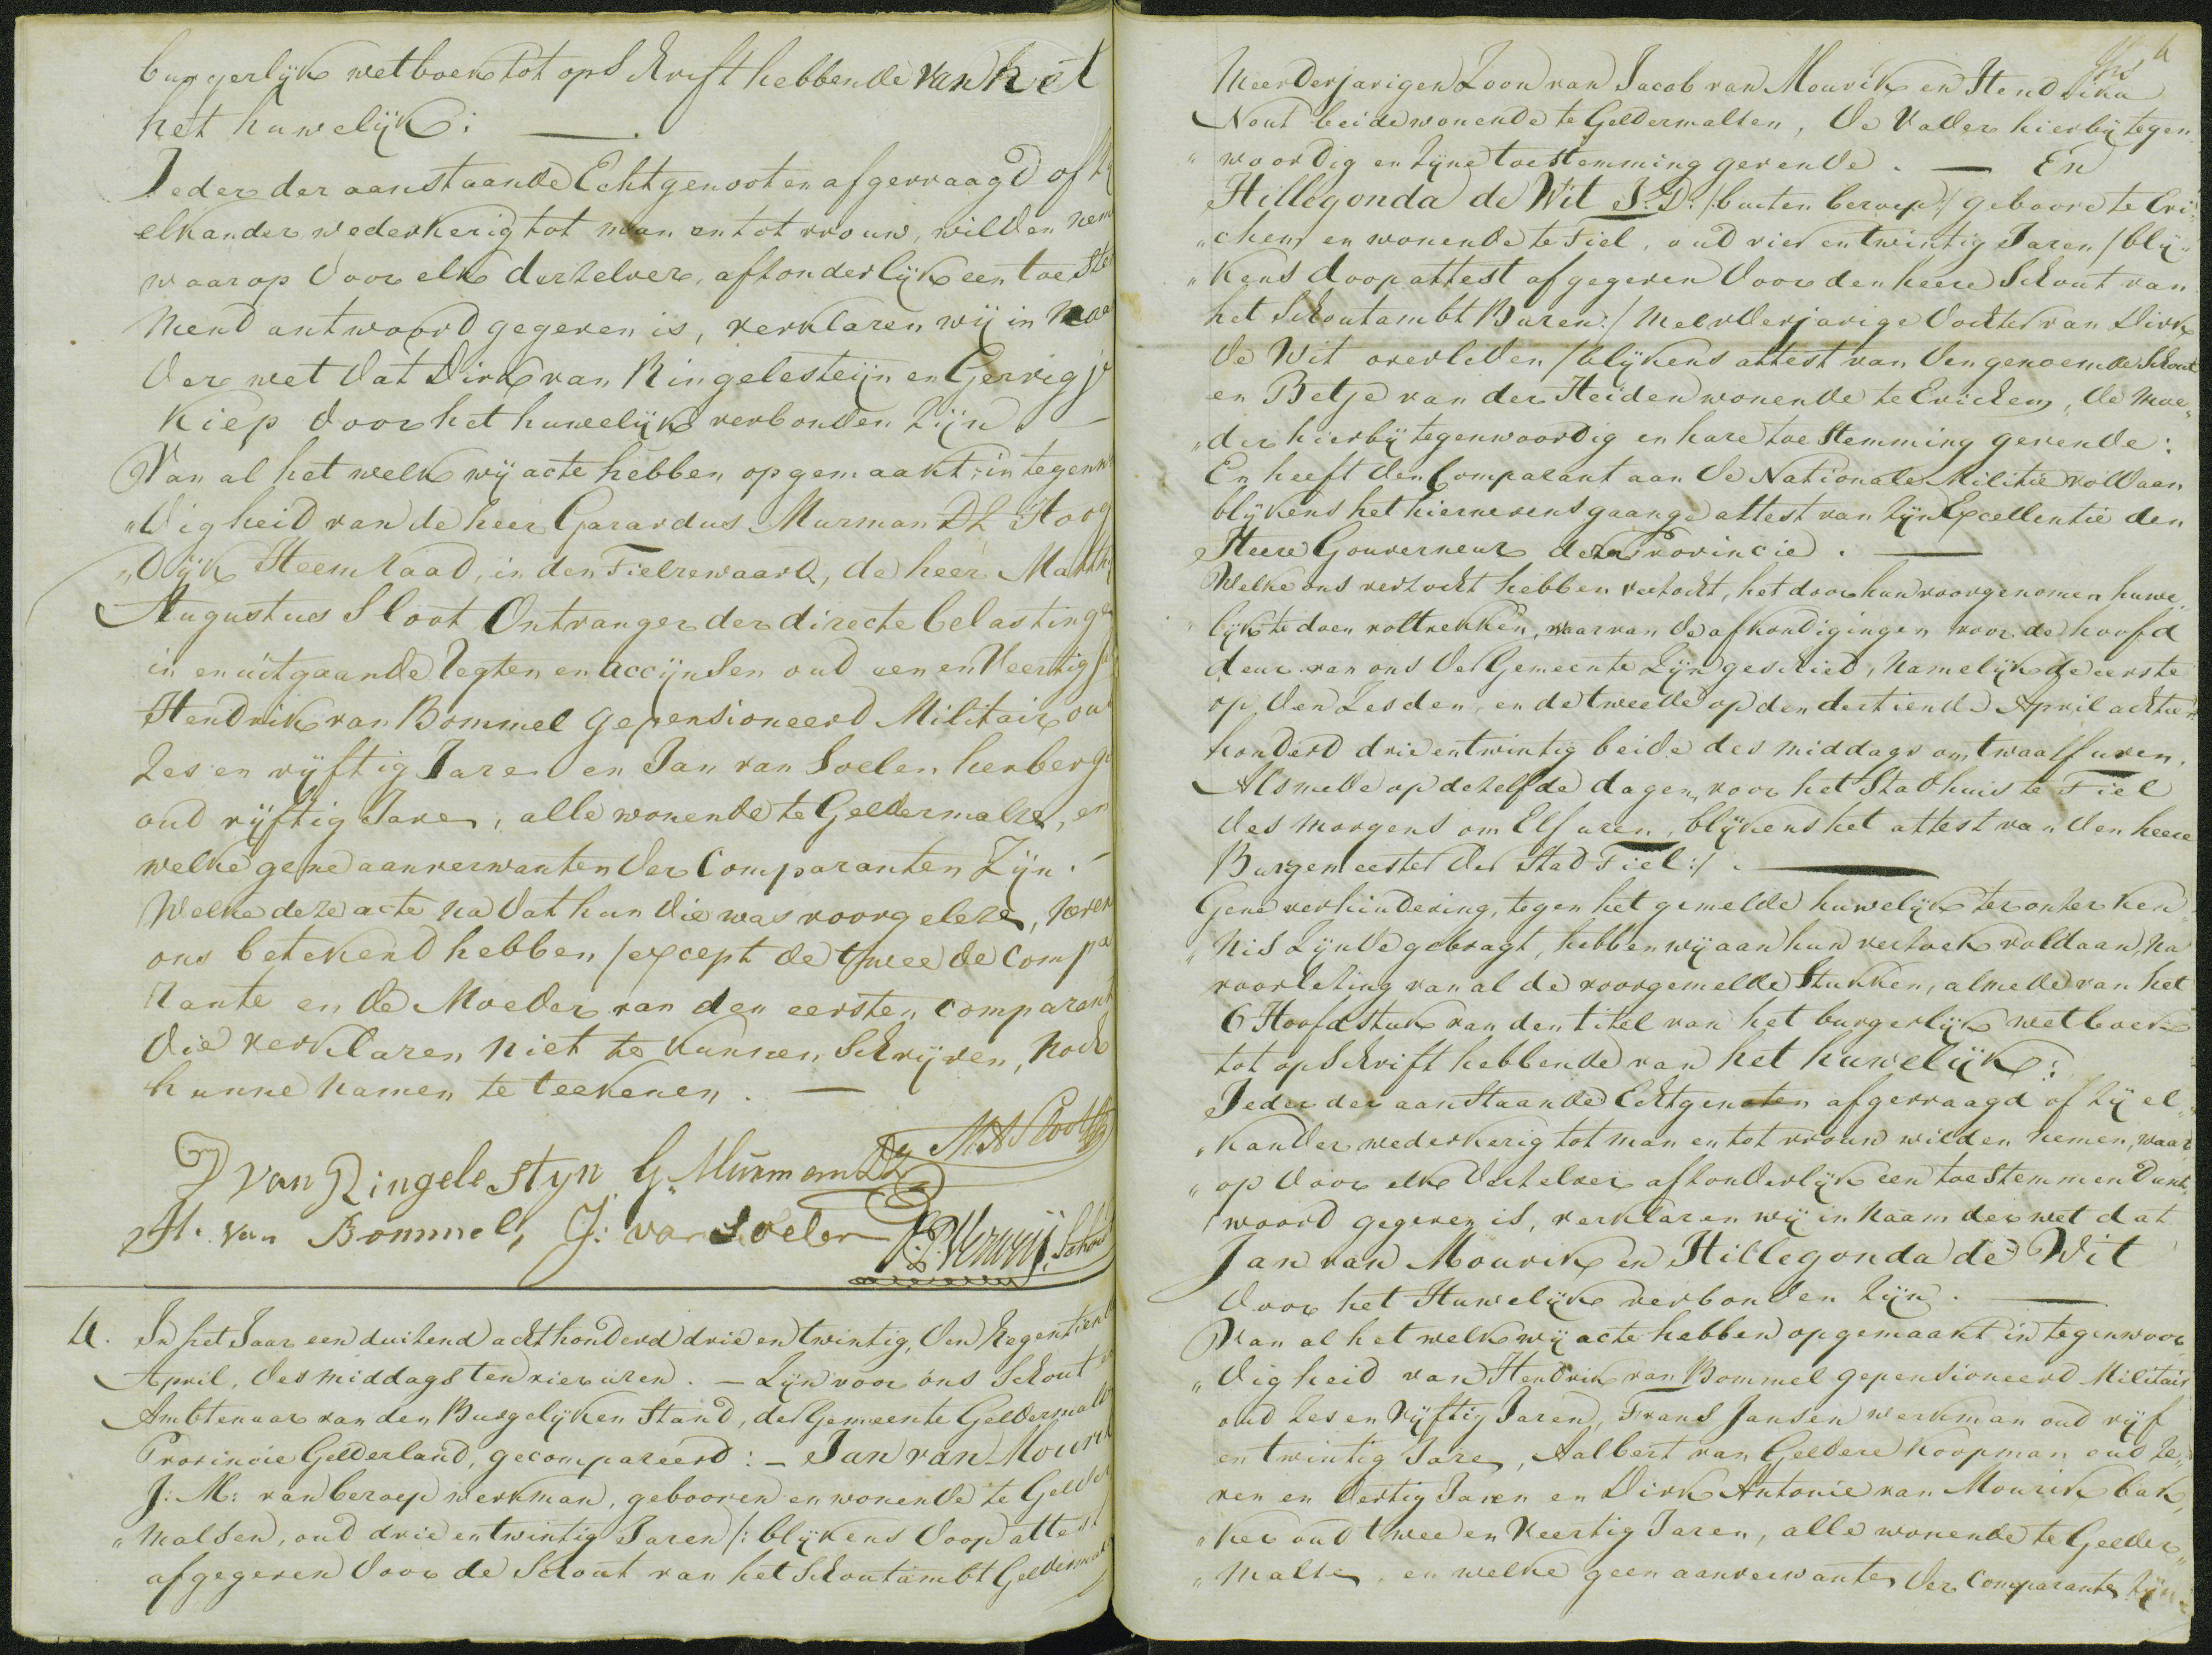 burgerlijk wetboek tot opschrift hebbende van het
het huwelijk:
Ieder der aanstaande Echtgenooten afgevraagd of zij
elkander wederkerig tot man en tot vrouw, wilden nem
waarop door elk derzelver, afzonderlijk een toeste
mend antwoord gegeven is, verklaren wij in naa
der wet dat Dirk van Ringelesteijn en Gerrigje
Kiep door het huwelijk verbonden zijn
Van al het welk wij acte hebben opgemaakt, in tegenw
„digheid van de heer Garardus Murman DZ Hoog
„dijk Heemraad, in den Tielrewaard, de heer Matth
Augustus Sloot Ontvanger der directe belastinge
in en uitgaande regten en accijnsen oud een en veertig
Hendrik van Bommel gepensioneerd Militair ou
zes en vijftig Jare en Jan van Soelen herberg
oud vijftig Jare, alle wonende te Geldermalse, en
welke gene aanverwanten der Comparanten Zijn.
Welke deze acte na dat hun die was voorgeleze, neven
ons betekend hebben /except de tweede Compa
rante en de Moeder van den eersten comparant
die verklaren niet te kunnen schrijven, noch
hunne namen te teekenen.
D van Ringelestyn G. Murman DZ M A Sloot
H. van Bommel, J: van Soelen Verweij Schout
4. In het Jaar een duizend acht honderd drie en twintig, den Negentiend
April, des middags ten vier uren. – Zijn voor ons Schout
Ambtenaar van den Burgelijken Stand, der Gemeente Geldermals
Provincie Gelderland, gecompareerd: – Jan van Mourik
J: M: van beroep werkman, gebooren en wonende te Gelder
„malsen, oud drie en twintig Jaren /: blijkens Doop attest
afgegeven door de Schout van het Schoutambt Geldermals
4
Meerderjarigen Zoon van Jacob van Mourik en Hendrika
Nout beide wonende te Geldermalsen, de Vader hierbij tegen
„woordig en zijne toestemming gevende. — En
Hillegonda de Wit J: D: /buiten beroep/ geboore te Eri„
„chem en wonende te Tiel, oud vier en twintig Jaren /blij„
„kens doop attest afgegeven door den heere Schout van
het Schoutambt Buren:/ Meerderjarige dochter van Dirk
de Wit overleden /blijkens attest van den genoemde Schout
en Betje van der Heiden wonende te Erichem, de moe„
„der hierbij tegenwoordig en hare toestemming gevende:
En heeft den Comparant aan de Nationale Militie voldaan
blijkens het hiernevens gaande attest van zijn Excellentie den
Heere Gouverneur dezer Provincie.
Welke ons verzocht hebben verzocht, het door hun voorgenomen huwe„
„lijk te doen voltrekken, waarvan de afkondigingen voor de hoofd
deur van ons der Gemeente Zijn geschied, namelijk de eerste
op den Zesden, en de tweede op den dertiende April achtien
honderd drie entwintig beide des middags om twaalf uren.
Als mede op dezelfde dagen, voor het Stadhuis te Tiel
des morgens om Elf uren, blijkens het attest van den heere
Burgemeester der Stad Tiel:/.
Gene verhindering, tegen het gemelde huwelijk ter onzer ken
„nis zijnde gebragt, hebben wij aan hun verzoek voldaan, na
voorlezing van al de voorgemelde Stukken, almede van het
6 Hoofdstuk van den titel van het burgerlijk wetboek
tot opschrift hebbende van het huwelijk:
Ieder der aanstaande Echtgenoten afgevraagd of zij el„
„kander wederkerig tot man en tot vrouw wilden nemen, waar
„op door elk derzelver afzonderlijk een toestemmend ant„
woord gegeven is, verklaren wij in naam der wet dat
Jan van Mourik en Hillegonda de Wit
door het Huwelijk verbonden zijn.
Van al het welk wij acte hebben opgemaakt in tegenwoor„
„digheid van Hendrik van Bommel gepensioneerd Militair,
oud zes en Vijftig Jaren, Frans Jansen werkman oud vijf
en twintig Jare, Aalbert van Geldere koopman oud ze„
ven en dertig Jaren en Dirk Antonie van Mourik bak„
„ker oud twee en Veertig Jaren, alle wonende te Gelder„
„malse, en welke geen aanverwante der Comparante zijn